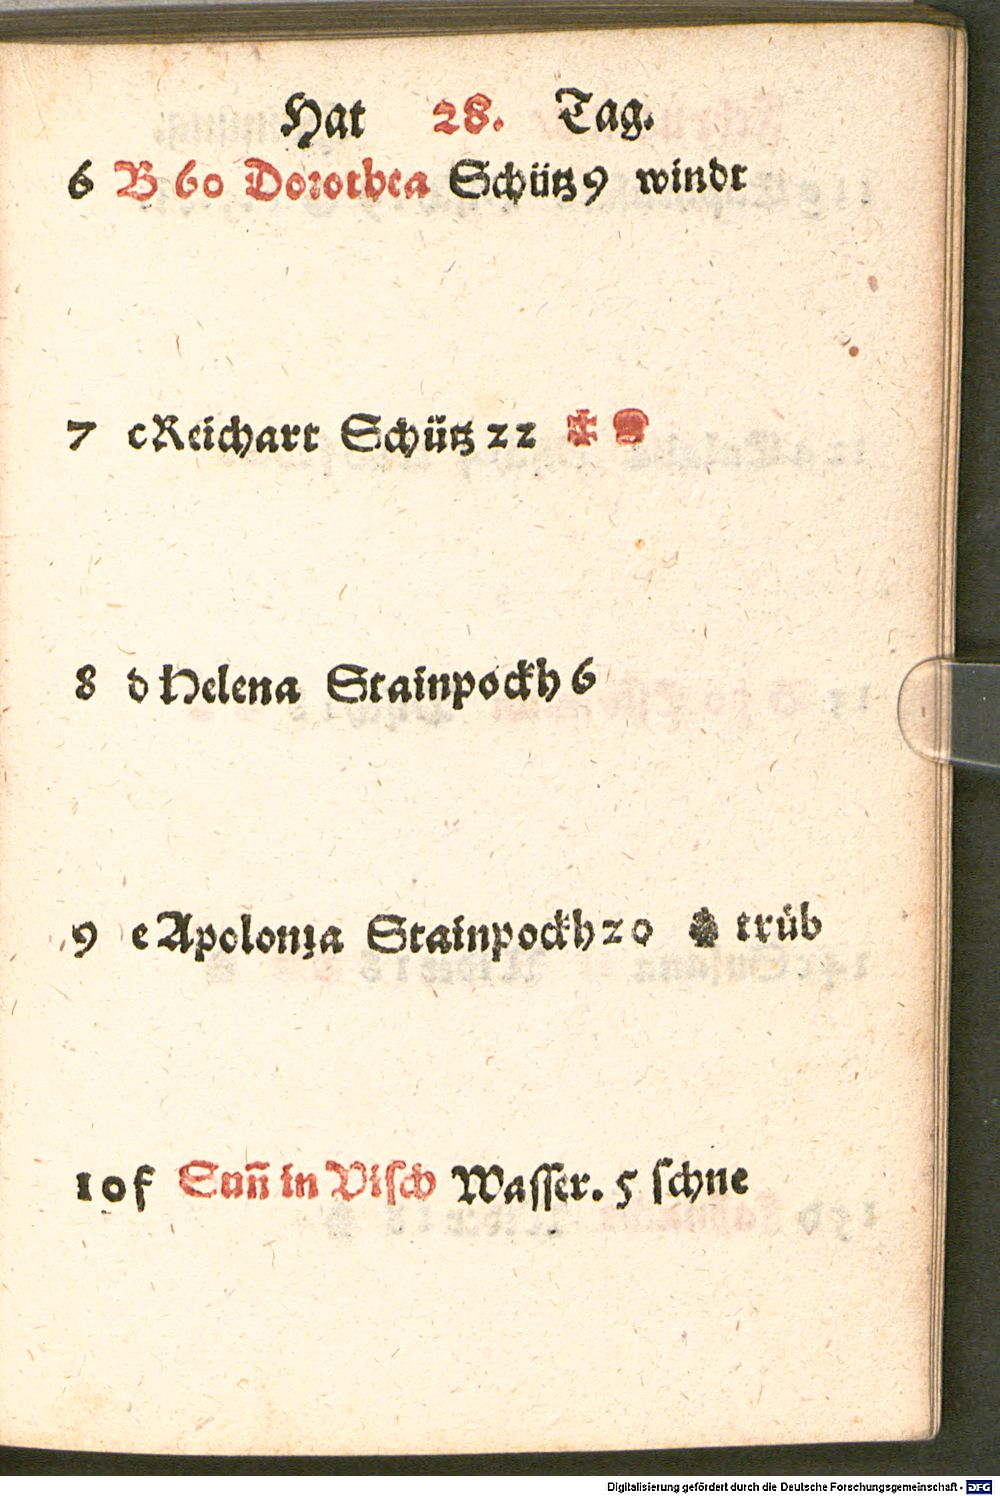 Hat 28. Tag.
6 B 60 Dorothea Schütz 9 windt
7 c Reichart Schütz 22
8 d Helena Stainpockh 6
9 e Apolonia Stainpockh 20 trüb
10 f Sun̄ in Visch Wasser. 5 schne
Digitalisierung gefördert durch die Deutsche Forschungsgemeinschaft - DFG